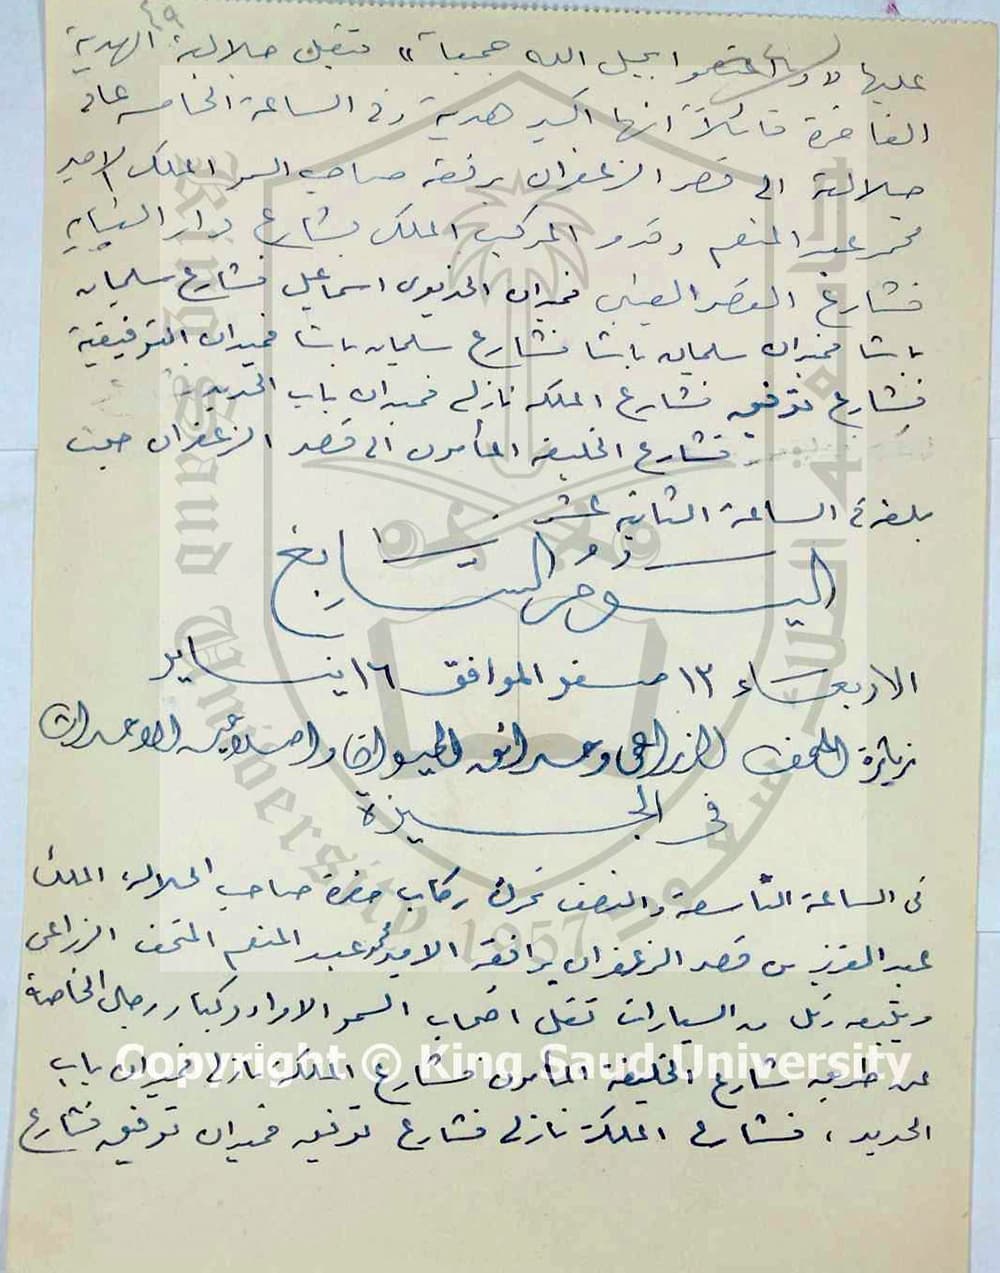 ٤٩
عليها لا واعتصموا بحبل الله جميعا" فتقبل جلالته الهدية
الفاخرة قائلاً انها اكبر هدية وفى الساعة الخامسة عاد
جلالته الى قصر الزعفران برفقة صاحب السمو الملكى الامير
محمد عبد المنعم وقدم المركب الملكى بشارع دار النيابه
فشارع القصر العينى فميدان الخديوى اسماعيل فشارع سليمان
باشا فميدان سليمان باشا فشارع سليمان باشا فميدان التوفيقية
فشارع توفيق فشارع الملكه نازلى فميدان باب الحديد
فشارع الخليفه المأمون الى قصر الزعفران حيث
بلغه فى الساعة الثانيه عشر
اليوم السابع
الاربعاء ١٣ صفر الموافق ١٦ يناير
زيارة المتحف الزراعى وحدائق الحيوان والاوحدات
فى الجيزة
فى الساعة التاسعة والنصف تحرك ركاب حضرة صاحب الجلالة الملك
عبد العزيز من قصر الزعفران يرافقه الامير محمد عبد المنعم المتحف الزراعى
ويتبعه رتل من السيارات تقل اصحاب السمو الامراء وكبار رجال الخاصة
عن طريق شارع الخليفة المأمون فشارع الملكة نازلى فميدان باب
الحديد، فشارع الملكة نازلى فشارع توفيق فميدان توفيق فشارع
King Saud University 1957
Copyright © King Saud University